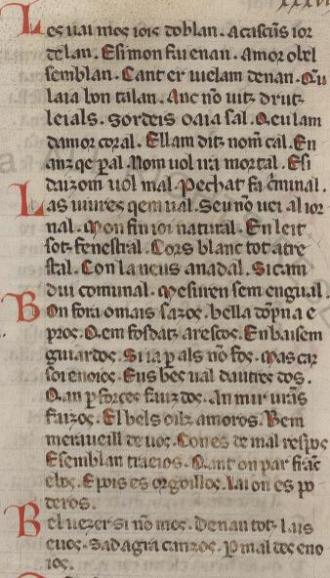 Les uai mos iois doblan. A cascus ior
delan. E si mon fai enan. Amor o bel
semblan. Cant er uielam denan. Qu
laia bon talan. Anc no uitz drutz
leials. Sordeis o aia sal. Q eu lam
damor coral. Ellam ditz nom cal. En
anz qe p al. Nom uol ira mortal. E si
daizom uol mal. Pechat fa criminal.
Las uiures qem ual. Seu no uei al ior
nal. Mon fin ioi natural. En leit
sotz fenestral. Cors blanc tot atre
stal. Con la neus a nadal. Si cam
dui comunal. Mesuren sem engual
Bon fora omais sazos. bella dompna e
pros. Qem fosdatz a rescos. En baisem
guiardos. Si ia p als no fos. Mas car
soi enoios. Cus bes ual dautres dos.
Qan p forces faiz dos. An mir uras
faizos. El bels oilz amoros. Bem
meraueill de uos. Con es de mal respos
E semblan tracios. Qant on par franc
e los. E pois es orgoillos. Lai on es po
deros.
Bel uezer si no mos. De nan totz lais
euos. Sad agra canzos. P mal dos eno
ios.